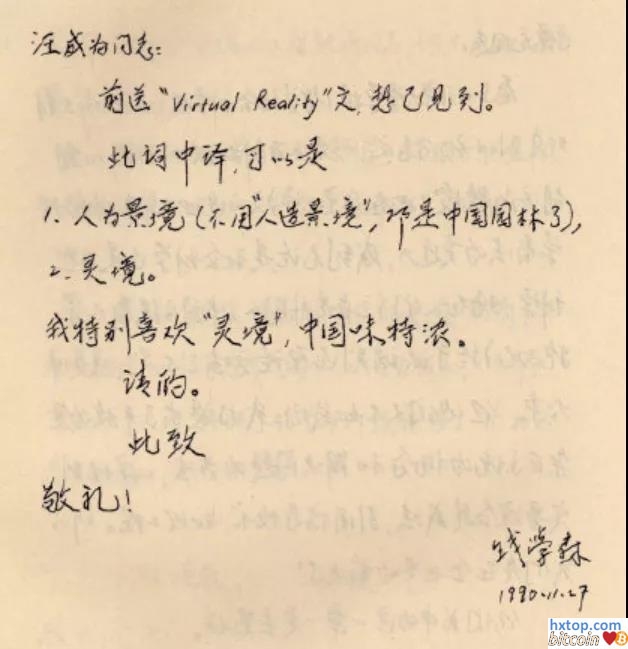 汪成为同志：
前送“Virtual Reality”文，想已见到。
此词中译，可以是
1. 人为景境（不用“人造景境”，那是中国园林了），
2. 灵境。
我特别喜欢“灵境”，中国味特浓。
请酌。
此致
敬礼！
钱学森
1990.11.27
hxtop.com
bitcoin